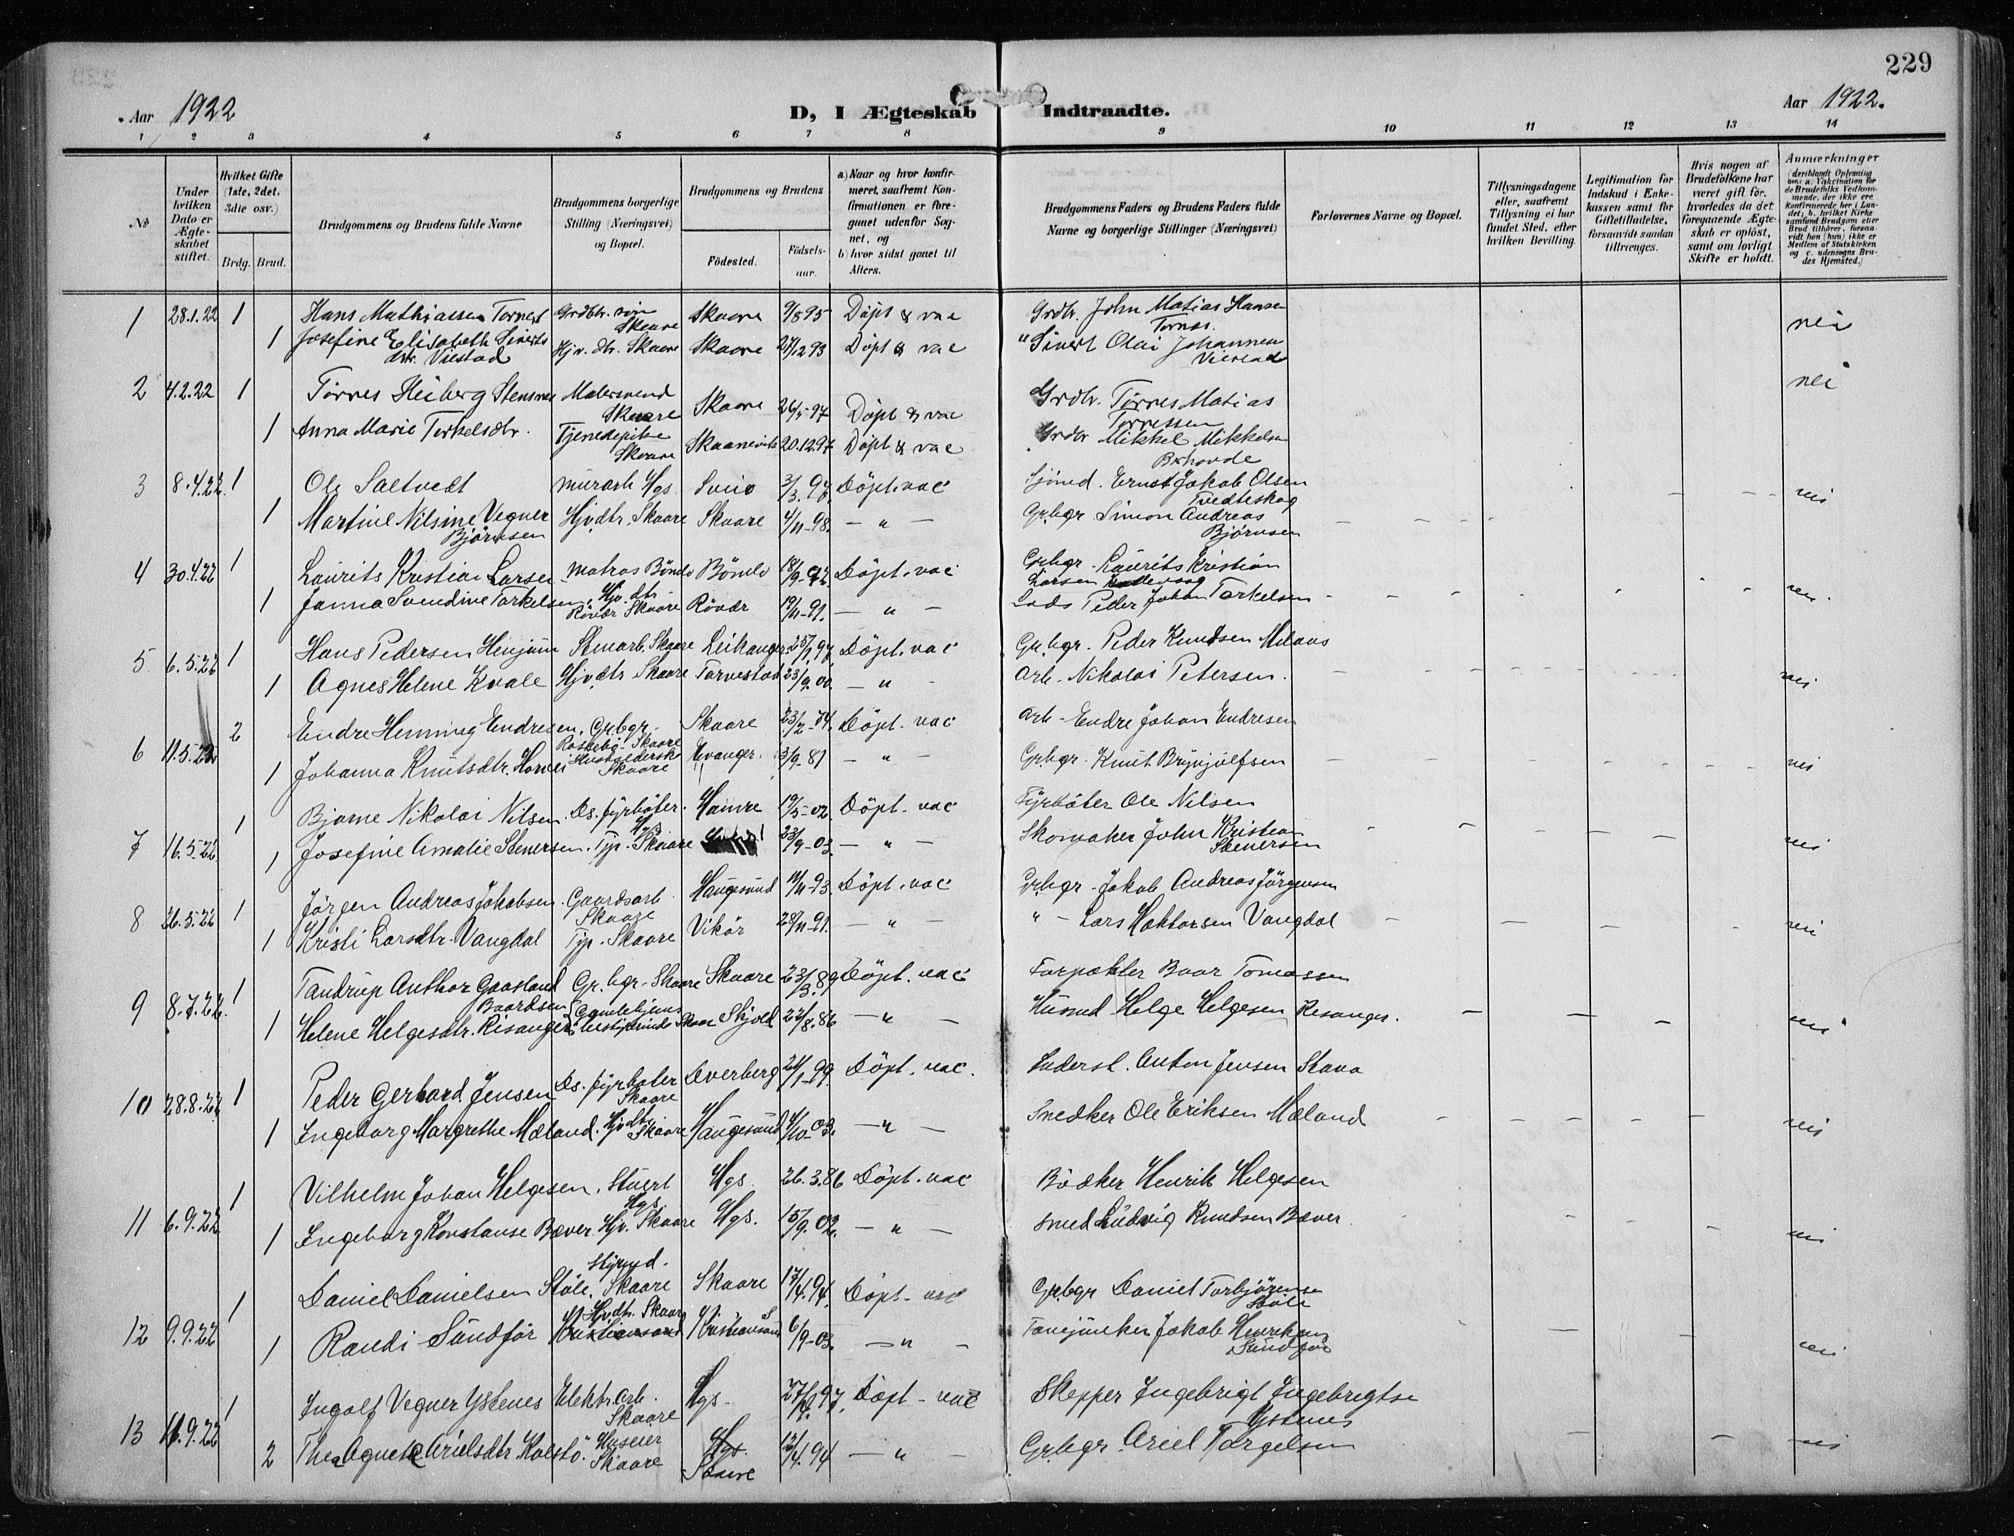 229
Aar 1922
D, I Ægteskab Indtraadte.
Aar 1922.
1 2 3 4 5 6 7 8 9 10 11 12 13 14
No
Under hvilken Dato er Ægteskabet stiftet.
Hvilket Gifte (1ste, 2det. 3die osv.)
Brdg. Brud.
Brudgommens og Brudens fulde Navne
Brudgommens borgerlige Stilling (Næringsvei) og Bopæl.
Brudgommens og Brudens
Fødested.
Fødselsaar.
a) Naar og hvor konfirmeret, saafremt Konfirmationen er foregaaet udenfor Sognet, og
b) hvor sidst gaaet til Alters.
Brudgommens Faders og Brudens Faders fulde Navne og borgerlige Stillinger (Næringsvei)
Forlovernes Navne og Bopæl.
Tillysningsdagene eller, saafremt Tillysning ei har fundet Sted, efter hvilken Bevilling.
Legitimation for Indskud i Enkekassen samt for Giftetilladelse, forsaavidt saadan tiltrænges.
Hvis nogen af Brudefolkene har været gift før, hvorledes da det foregaaende Ægteskab er opløst, samt om lovligt Skifte er holdt.
Anmærkninger (deriblandt Oplysning om: a. Vakcination for de Brudefolks Vedkommende, der ikke ere Konfirmerede her i Landet; b. hvilket Kirkesamfund Brudgom eller Brud tilhører, forsaavidt han (hun) ikke er Medlem af Statskirken og c. udensogns Brudes Hjemsted.)
1 28.1.22 1 Hans Mathiassen Tornes Grdbr. søn Skaare Skaare 9/8 95 Døpt & vac Grdbr. John Matias Hansen Tornes. nei
1 Josefine Elisabeth Siverts dtr. Viestad Hjv. dtr. Skaare Skaare 27/12 93 Døpt & vac " Sivert Olai Johannen Vierstad
2 4.2.22 1 Tørres Heiberg Stensnes Malersvend Skaare Skaare 26/5-97 Døpt & vac Grdbr. Tørres Matias Tørressen nei
1 Anna Marie Torkelsdtr. Tjenestepike Skaare Skaanevik 20.12.97 Døpt & vac Grdbr Mikkel Mikkelsen
3 8.4.22. 1 Ole Saltvedt murarb Hgs. Sveio 3/3.98. Döpt. vac Sjömd. Ernst Jakob Olsen Tvedteskog nei
1 Martine Nilsine Vegner Björnsen Hjvdtr. Skaare Skaare 4/11-98. — " — Gr.bgr Simon Andreas Bjørnsen
4 30.4.22 1 Laurits Kristian Larsen Matros Bömlo Bömlo 18/9-92. Döpt. vac Gr.bgr. Laurits Kristian Larsen nei.
1 Janna Svendine Torkelsen Hjv. dtr. Rövær Skaare Rövær 19/11-91. — " — Lods Peder Johan Torkelsen
5 6.5.22 1 Hans Pedersen Henjum Stenarb. Skaare Leikanger 25/1.97. Döpt. vac Gr.bgr. Peder Knudsen
1 Agnes Helene Kvale Hjv.dtr Skaare Torvestad 23/9.00. — " — Arb. Nikolai Petersen. nei
6 11.5.22 2 Endre Henning Endresen. Gr.bgr. Rossebö-Skaare Skaare 23/2-74. Döpt. vac Arb. Endre Johan Endresen
1 Johanna Knutsdtr. Horvei Husholderske Skaare Evanger. 3/9-81 — " — Gr.bgr. Knut Brynjulfsen nei
7 16.5.22 1 Bjarne Nikolai Nilsen Ds. fyrböter. Hgs Hamre 19/5-02 Döpt. vac Fyrböter Ole Nilsen
1 Josefine Amalie Stenersen. Tjp. Skaare 23/9-03. — " — Skomaker John Kristian Stenersen nei
8 26.5.22 1 Jörgen Andreas Jakobsen. Gaardsarb. Skaare Haugesund 11/11-93. Döpt. vac Gr.bgr. Jakob Andreas Jörgensen
1 Kristi Larsdtr. Vangdal Tjp. Skaare Vikör 28/11-91. — " — " - Lars Haktorsen Vangdal nei
9 8.7.22. 1 Tandrup Anthor Gaasland Baardsen Gr. bgr. Skaare Skaare 23/3.89 Döpt. vac Forpakter Baar Tomassen
1 Helene Helgesdtr. Risanger Gamlehjems bestyrerinde Skaare Skjold 22/8.86 — " — Husmd Helge Helgesen Risanger. nei
10 28.8.22 1 Peder Gerhard Jensen Ds. fyrböter Skaare Averberg 21/1-99. Döpt. vac. Inderst. Anton Jensen Stava
1 Ingeborg Margrethe Mæland. Hjvdtr. Skaare Haugesund 4/10-03. — " — Snedker Ole Eriksen Mæland nei
11 6.9.22 1 Vilhelm Johan Helgesen. Stuert Hgs Hgs. 26.3.86 Döpt. vac Bödker Henrik Helgesen
1 Ingeborg Konstanse Bæver. Hjv. Skaare Hgs. 15/9.02. — " — Smed Ludvig Knudsen Bæver. nei
12 9.9.22 1 Daniel Danielsen Stöle. Styrmd. Skaare Skaare 17/4.94. Döpt. vac Gr.bgr Daniel Torbjörnsen Stöle
1 Randi Sundför Hjv.dtr. Skaare Kristiansand Kristiansand 6/9-03. — " — Jakob Henriksen Sundför nei
13 11.9.22 1 Ingolf Vegner Ystenes Elektr. arb. Skaare Hgs. 27/4.97. Döpt. vac Skepper Ingebrigt Ingebrigtsen Ystenes
2 Thea Agnete Arielsdtr Kolstö. Huseier Skaare Hgs. Skaare 12/4.94 — " — Gr.bgr. Ariel Torgelsen nei